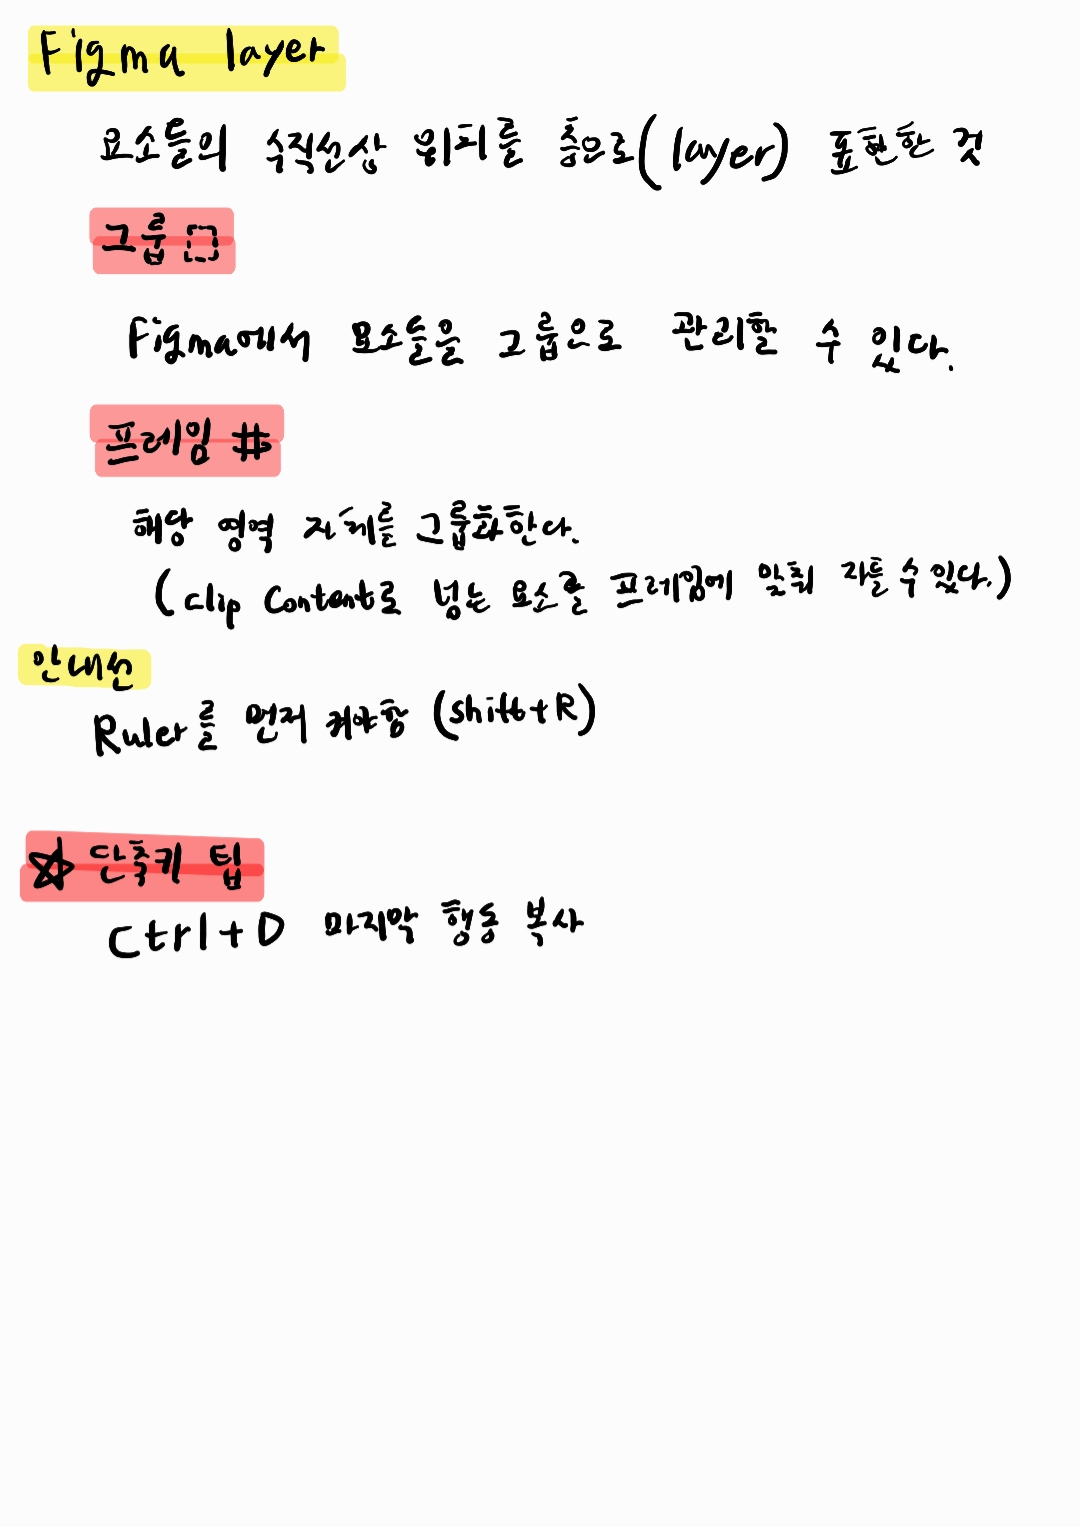 Figma layer
요소들의 수직선상 위치를 층으로(layer) 표현한 것
그룹
Figma에서 요소들을 그룹으로 관리할 수 있다.
프레임 #
해당 영역 자체를 그룹화한다.
(Clip Content로 넘는 요소를 프레임에 맞춰 자를 수 있다.)
안내선
Ruler를 먼저 켜야함 (shift+R)
☆ 단축키 팁
Ctrl+D 마지막 행동 복사